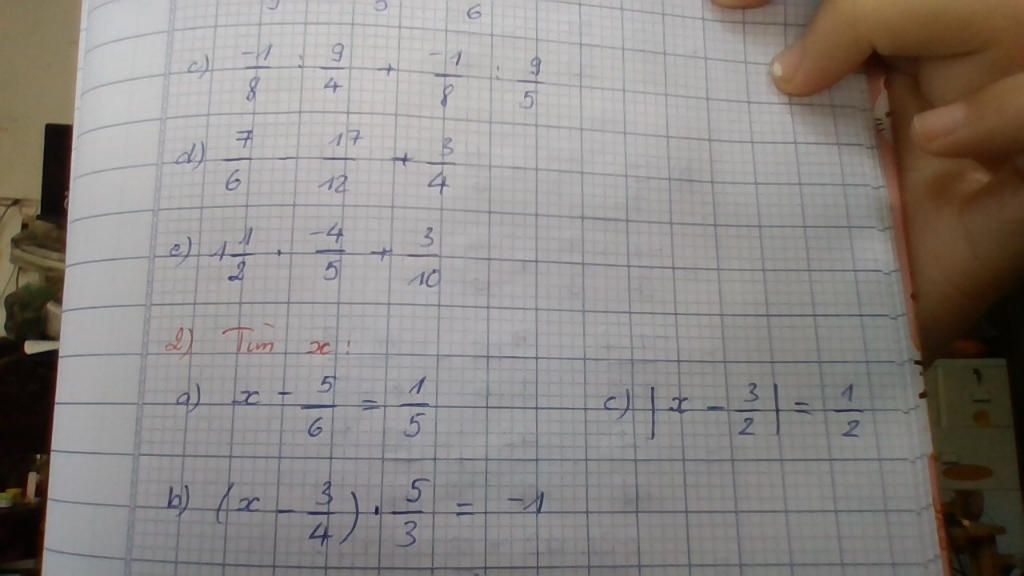 c) -1/8 : 9/4 + -1/8 : 9/5
d) 7/6 - 17/12 + 3/4
e) 1 1/2 . -4/5 + 3/10
2) Tìm x :
a) x - 5/6 = 1/5
c) |x - 3/2| = 1/2
b) (x - 3/4) . 5/3 = -1